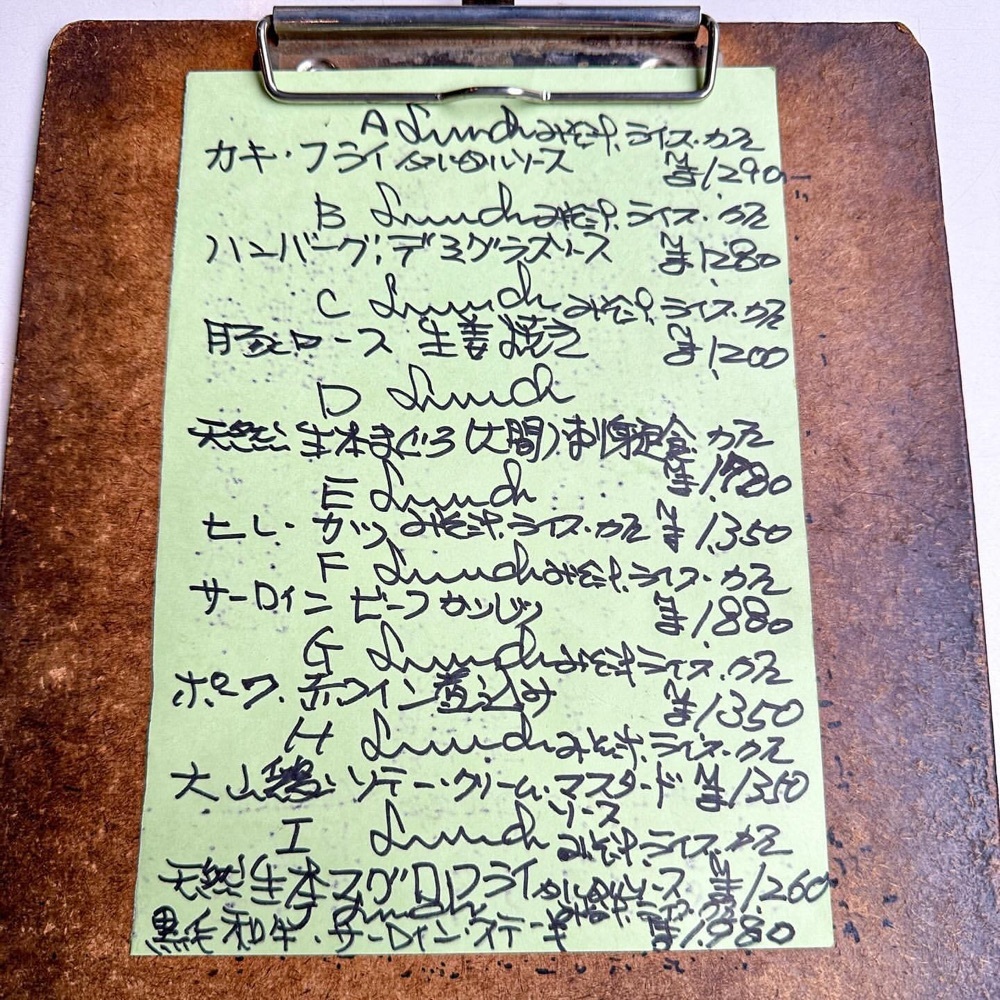 A Lunch みそ汁.ライス.カフェ
カキ・フライ タルタルソース ¥1290
B Lunch みそ汁.ライス.カフェ
ハンバーグ;デミグラスソース ¥1280
C Lunch みそ汁.ライス.カフェ
豚ロース 生姜焼き ¥1200
D Lunch
天然 生本まぐろ(大間)刺身定食 カフェ
¥1,780
E Lunch
ヒレ・カツ みそ汁.ライス.カフェ ¥1,350
F Lunch みそ汁.ライス.カフェ
サーロイン ビーフ カツレツ ¥1880
G Lunch みそ汁 ライス.カフェ
ポーク.赤ワイン煮込み ¥1350
H Lunch みそ汁.ライス.カフェ
大山鶏 ソテー・クリーム.マスタード ¥1350
ソース
I Lunch みそ汁.ライス.カフェ
天然 生本マグロフライ タルタルソース ¥1260
Lunch みそ汁.ライス.カフェ
黒毛和牛.サーロイン.ステーキ ¥1,980